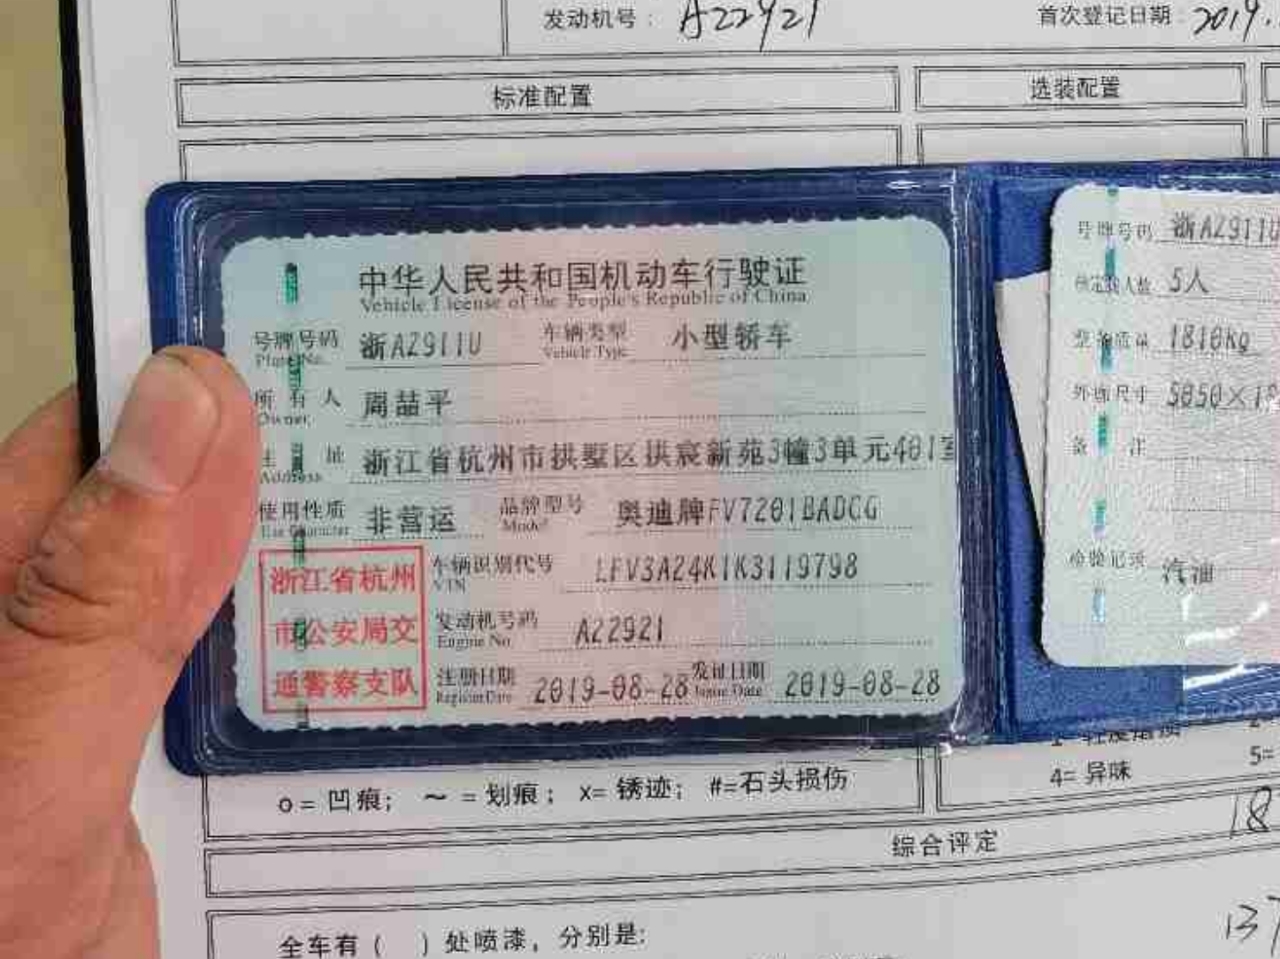 发动机号： A22921 首次登记日期 2019.
标准配置 选装配置
中华人民共和国机动车行驶证
Vehicle License of the People's Republic of China
号牌号码 浙AZ911U 车辆类型 小型轿车
Plate No. Vehicle Type
所有人 周喆平
Owner
住址 浙江省杭州市拱墅区拱宸新苑3幢3单元401室
Address
使用性质 非营运 品牌型号 奥迪牌FV7201BADCG
Use Character Model
浙江省杭州
市公安局交
通警察支队
车辆识别代号 LFV3A24K1K3119798
VIN
发动机号码 A22921
Engine No
注册日期 2019-08-28 发证日期 2019-08-28
Register Date Issue Date
号牌号码 浙AZ911U
核定载人数 5人
整备质量 1810kg
外廓尺寸 5050×18
备注
检验记录 汽油
4= 异味 5=
o = 凹痕； ～ = 划痕； x= 锈迹； #=石头损伤
综合评定 18
全车有（ ）处喷漆，分别是: 137